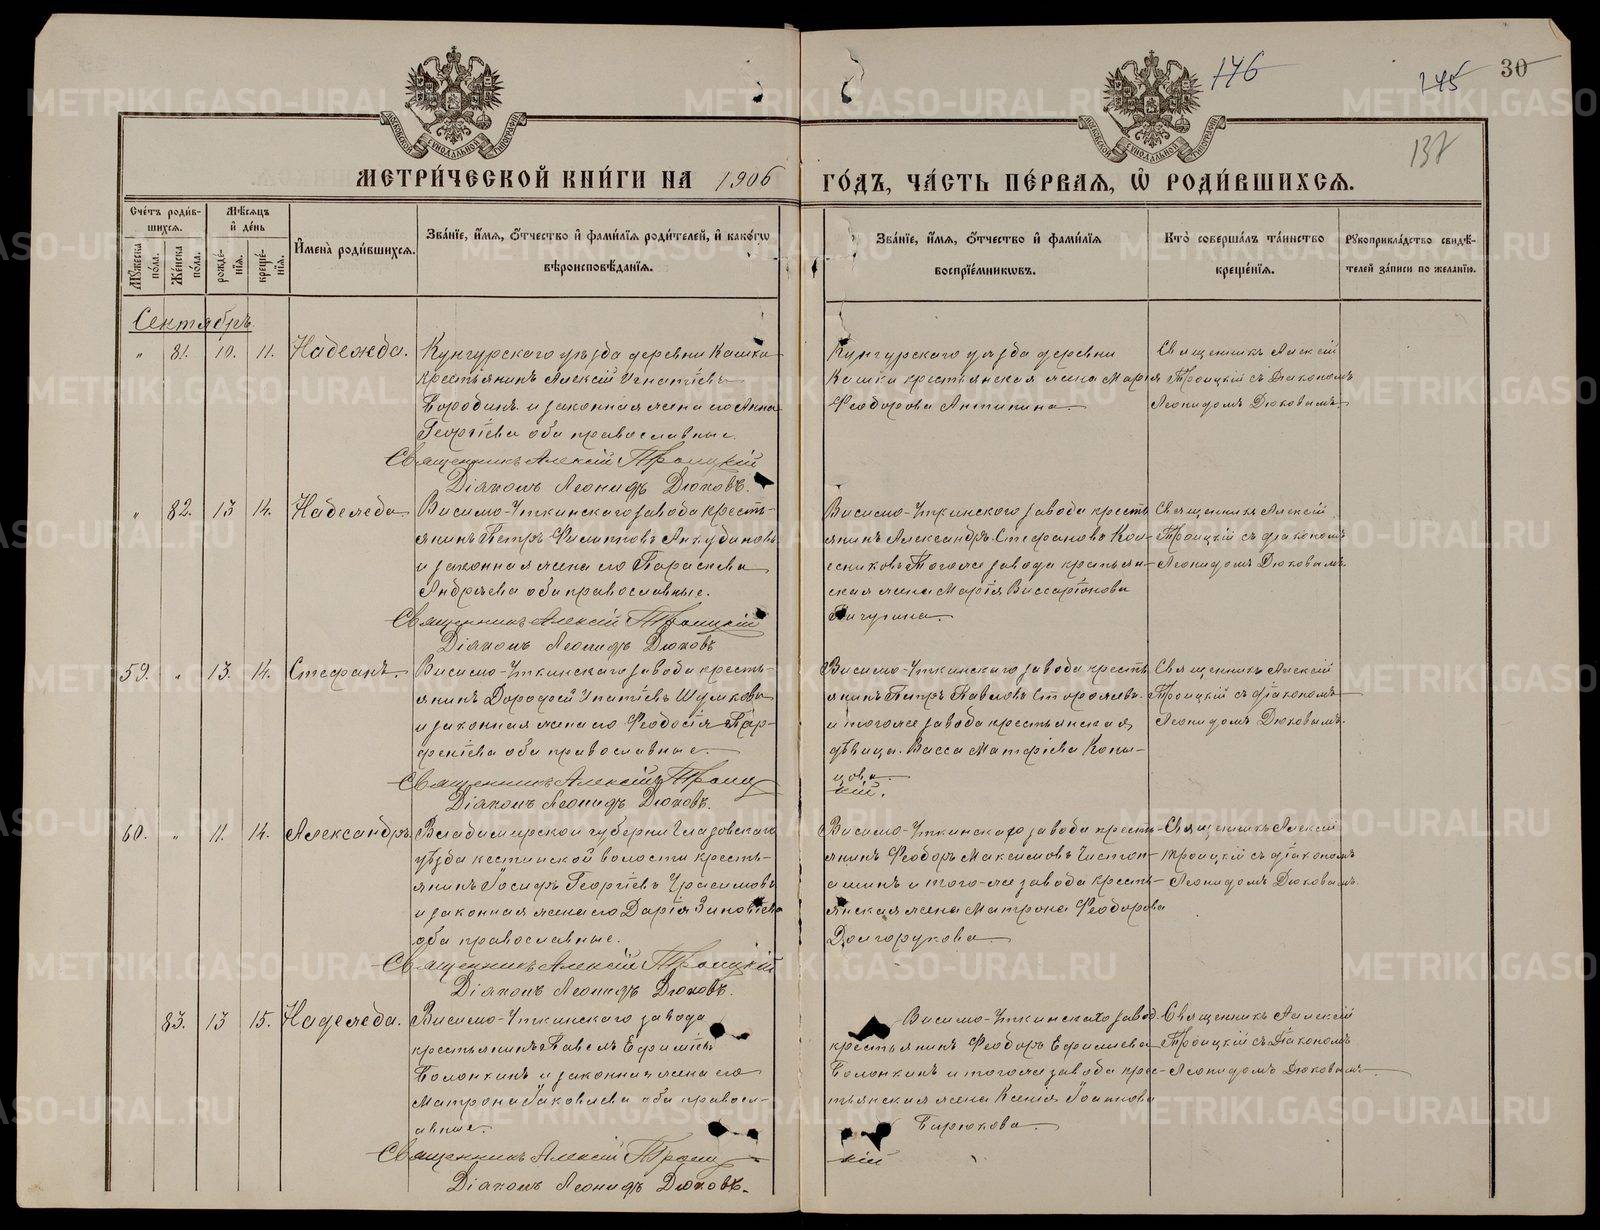 176
145
30
137
МОСКОВСКОЙ СѴНОДАЛЬНОЙ ТИПОГРАФІИ
МОСКОВСКОЙ СѴНОДАЛЬНОЙ ТИПОГРАФІИ
МЕТРИ́ЧЕСКОЙ КНИ́ГИ НА 1906 ГО́ДЪ, ЧА́СТЬ ПЕ́РВАЯ, Ѡ҆ РОДИ́ВШИХСЯ.
Сче́тъ роди́в-
шихся.
Мꙋжеска по́ла.
Же́нска по́ла.
Мѣ́сяцъ
и҆ де́нь
рожде́-
нїя.
креще́-
нїя.
И҆мена̀ роди́вшихся.
Зва́нїе, и҆́мя, ѻ҆́тчество и҆ фами́лїя роди́телей, и҆ како́гѡ
вѣроисповѣ́данїя.
Зва́нїе, и҆́мя, ѻ҆́тчество и҆ фами́лїя
воспрїе́мникѡвъ.
Кто̀ соверша́лъ та́инство
креще́нїя.
Рꙋкоприкла́дство свидѣ́-
телей за́писи по жела́нїю.
Сентябрь.
" 81. 10. 11. Надежда.
Кунгурскаго уѣзда деревни Кашка
крестьянинъ Алексій Игнатіевъ
Бородинъ и законная жена его Анна
Георгіева оба православные.
Священникъ Алексій Троицкій
Діаконъ Леонидъ Дюковъ.
Кунгурскаго уѣзда деревни
Кашки крестьянская жена Марія
Феодорова Антипина
Священникъ Алексій
Троицкій съ Діакономъ
Леонидомъ Дюковымъ
" 82. 13 14. Надежда
Висимо-Уткинскаго завода кресть-
янинъ Петръ Филипповъ
и законная жена его Параскева
Андреева оба православные.
Священникъ Алексій Троицкій
Діаконъ Леонидъ Дюковъ
Висимо-Уткинскаго завода кресть
янинъ Александръ Стефановъ Кол-
есниковъ Тогоже завода крестьян-
ская жена Марія Виссаріонова
Пичугина.
Священникъ Алексій
Троицкій съ діакономъ
Леонидомъ Дюковымъ
59. " 13. 14. Стефанъ.
Висимо-Уткинскаго завода кресть-
янинъ Дорофей Ипатіевъ Шумковъ
и законная жена его Феодосія Пар-
фенiева оба православные.
Священникъ Алексій Троиц
Діаконъ Леонидъ Дюковъ.
Висимо-Уткинскаго завода кресть
янинъ Петръ Павловъ Сторожевъ
и тогоже завода крестьянская
дѣвица Васса Матфіева Копы-
цова
кій.
Священникъ Алексій
Троицкій съ діакономъ
Леонидомъ Дюковымъ.
60. " 11. 14. Александръ
Владимирской губерни Глазовскаго
уѣзда кестинской волости кресть-
янинъ Іосифъ Георгіевъ
и законная жена его Дарія Зиновіева
оба православные.
Священникъ Алексій Троицкій
Діаконъ Леонидъ Дюковъ.
Висимо-Уткинскаго завода кресть-
янинъ Феодоръ Максимовъ
и того-же завода кресть-
янская жена Матрона Феодорова
Долгорукова
Священникъ Алексій
Троицкій съ діакономъ
Леонидомъ Дюковымъ.
83. 13 15. Надежда.
Висимо-Уткинскаго завода
крестьянинъ Павелъ Ефимовъ
Болонкинъ и законная жена его
Матрона Іаковлева оба правосл-
авные.
Священникъ Алексій Троиц
Діаконъ Леонидъ Дюковъ.
Висимо-Уткинскаго завод.
крестьянинъ Феодоръ Ефимиева
Болонкинъ и тогоже завода крес-
тьянская жена Ксенія Іоаннова
Бирюкова.
кій
Священникъ Алексій
Троицкій съ Діакономъ
Леонидомъ Дюковымъ
METRIKI.GASO-URAL.RU